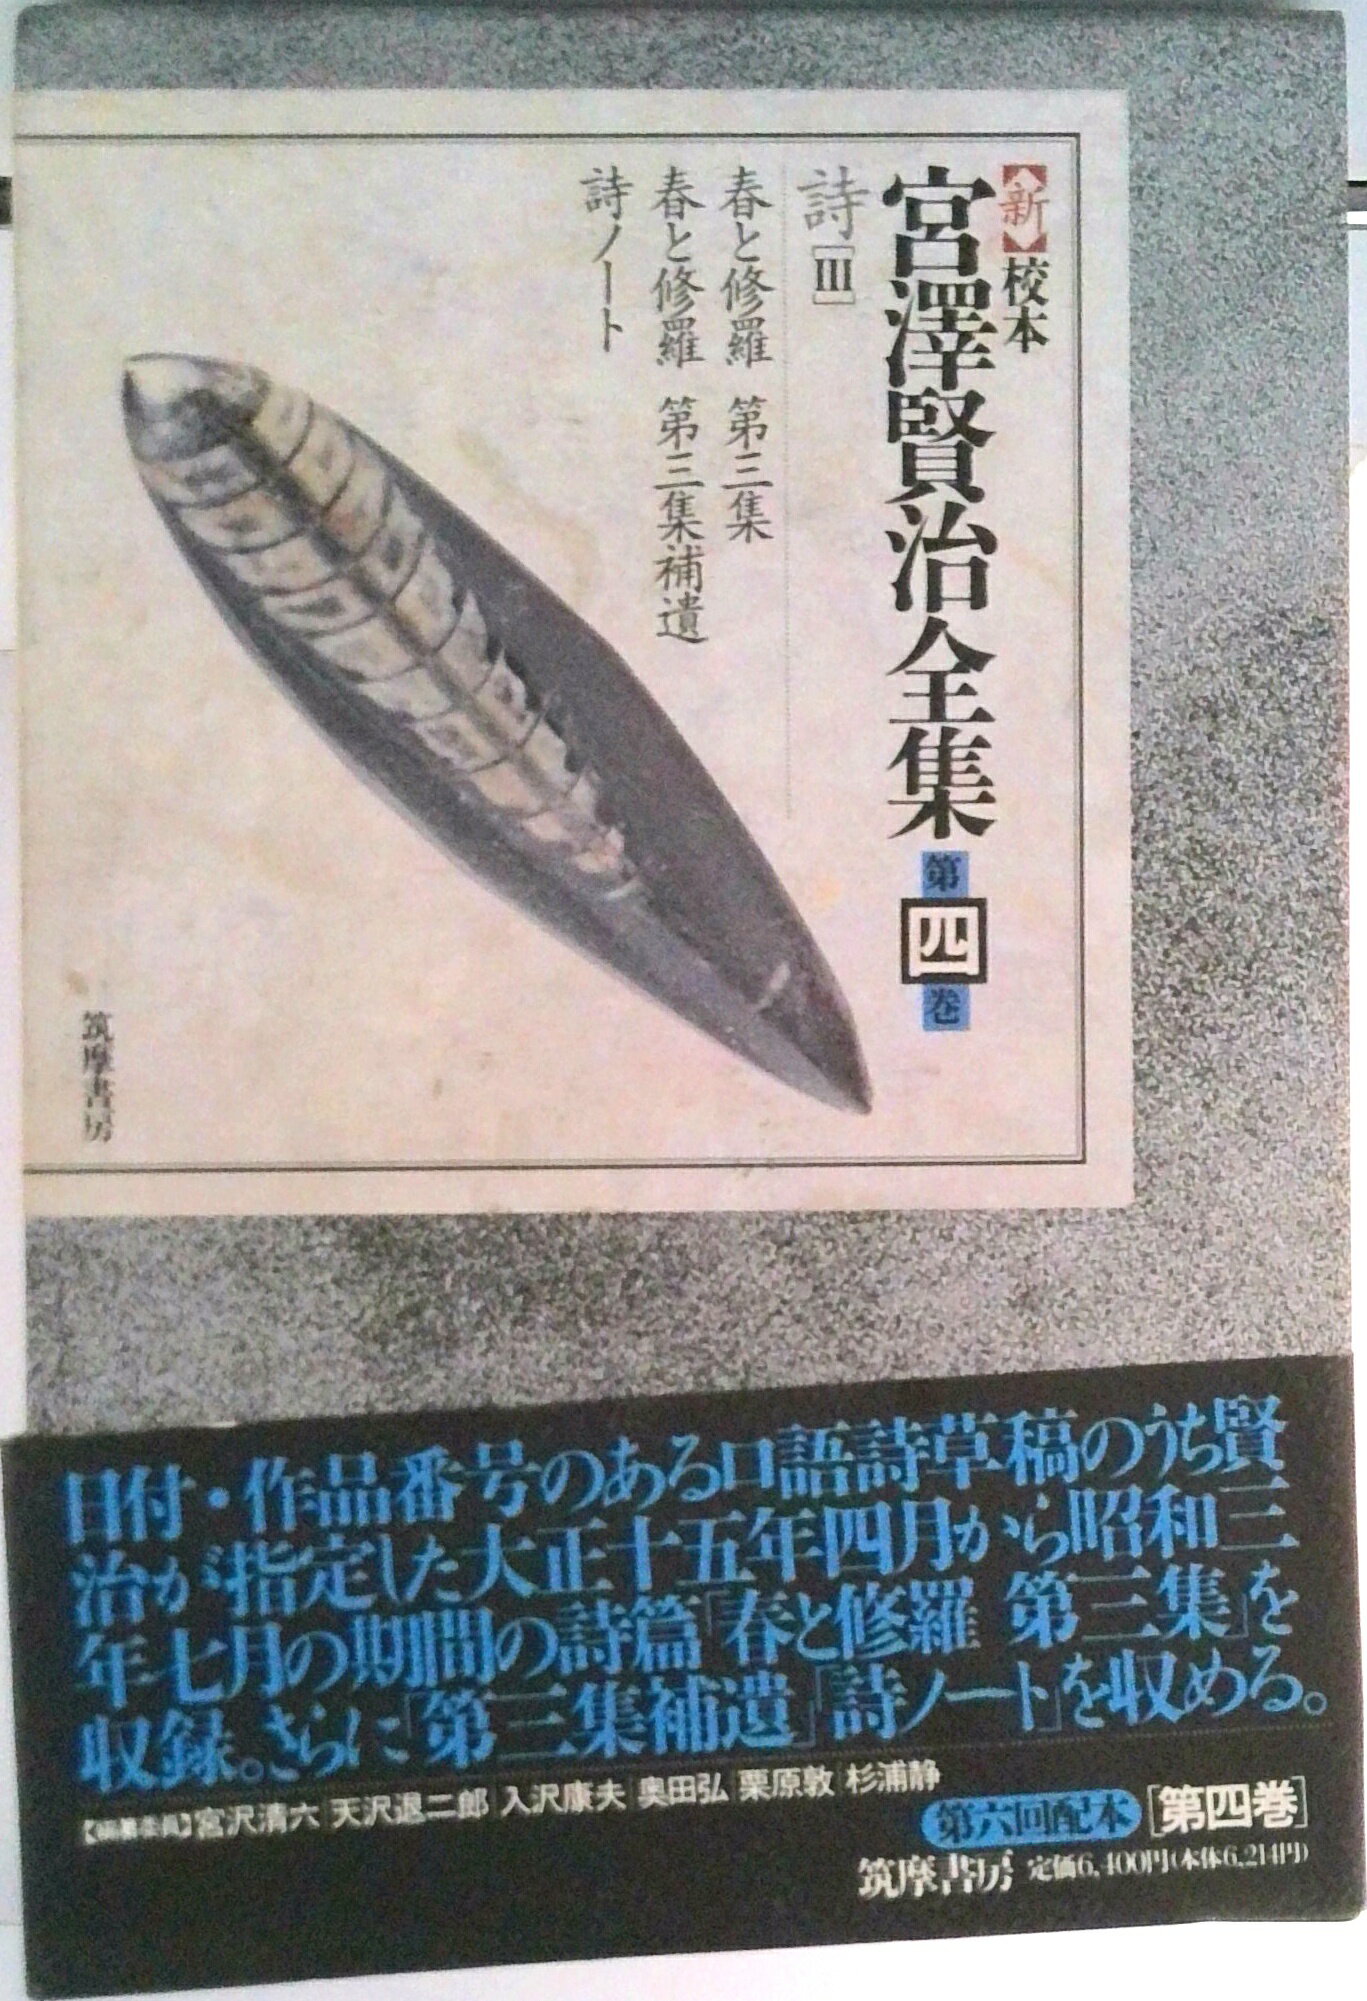 【新】校本
宮澤賢治全集 第四巻
詩[Ⅲ]
春と修羅 第三集
春と修羅 第三集補遺
詩ノート
筑摩書房
日付・作品番号のある口語詩草稿のうち賢
治が指定した大正十五年四月から昭和三
年七月の期間の詩篇「春と修羅 第三集」を
収録。さらに「第三集補遺」「詩ノート」を収める。
【編纂委員】宮沢清六 天沢退二郎 入沢康夫 奥田弘 栗原敦 杉浦静
第六回配本 [第四巻]
筑摩書房 定価6,400円(本体6,214円)